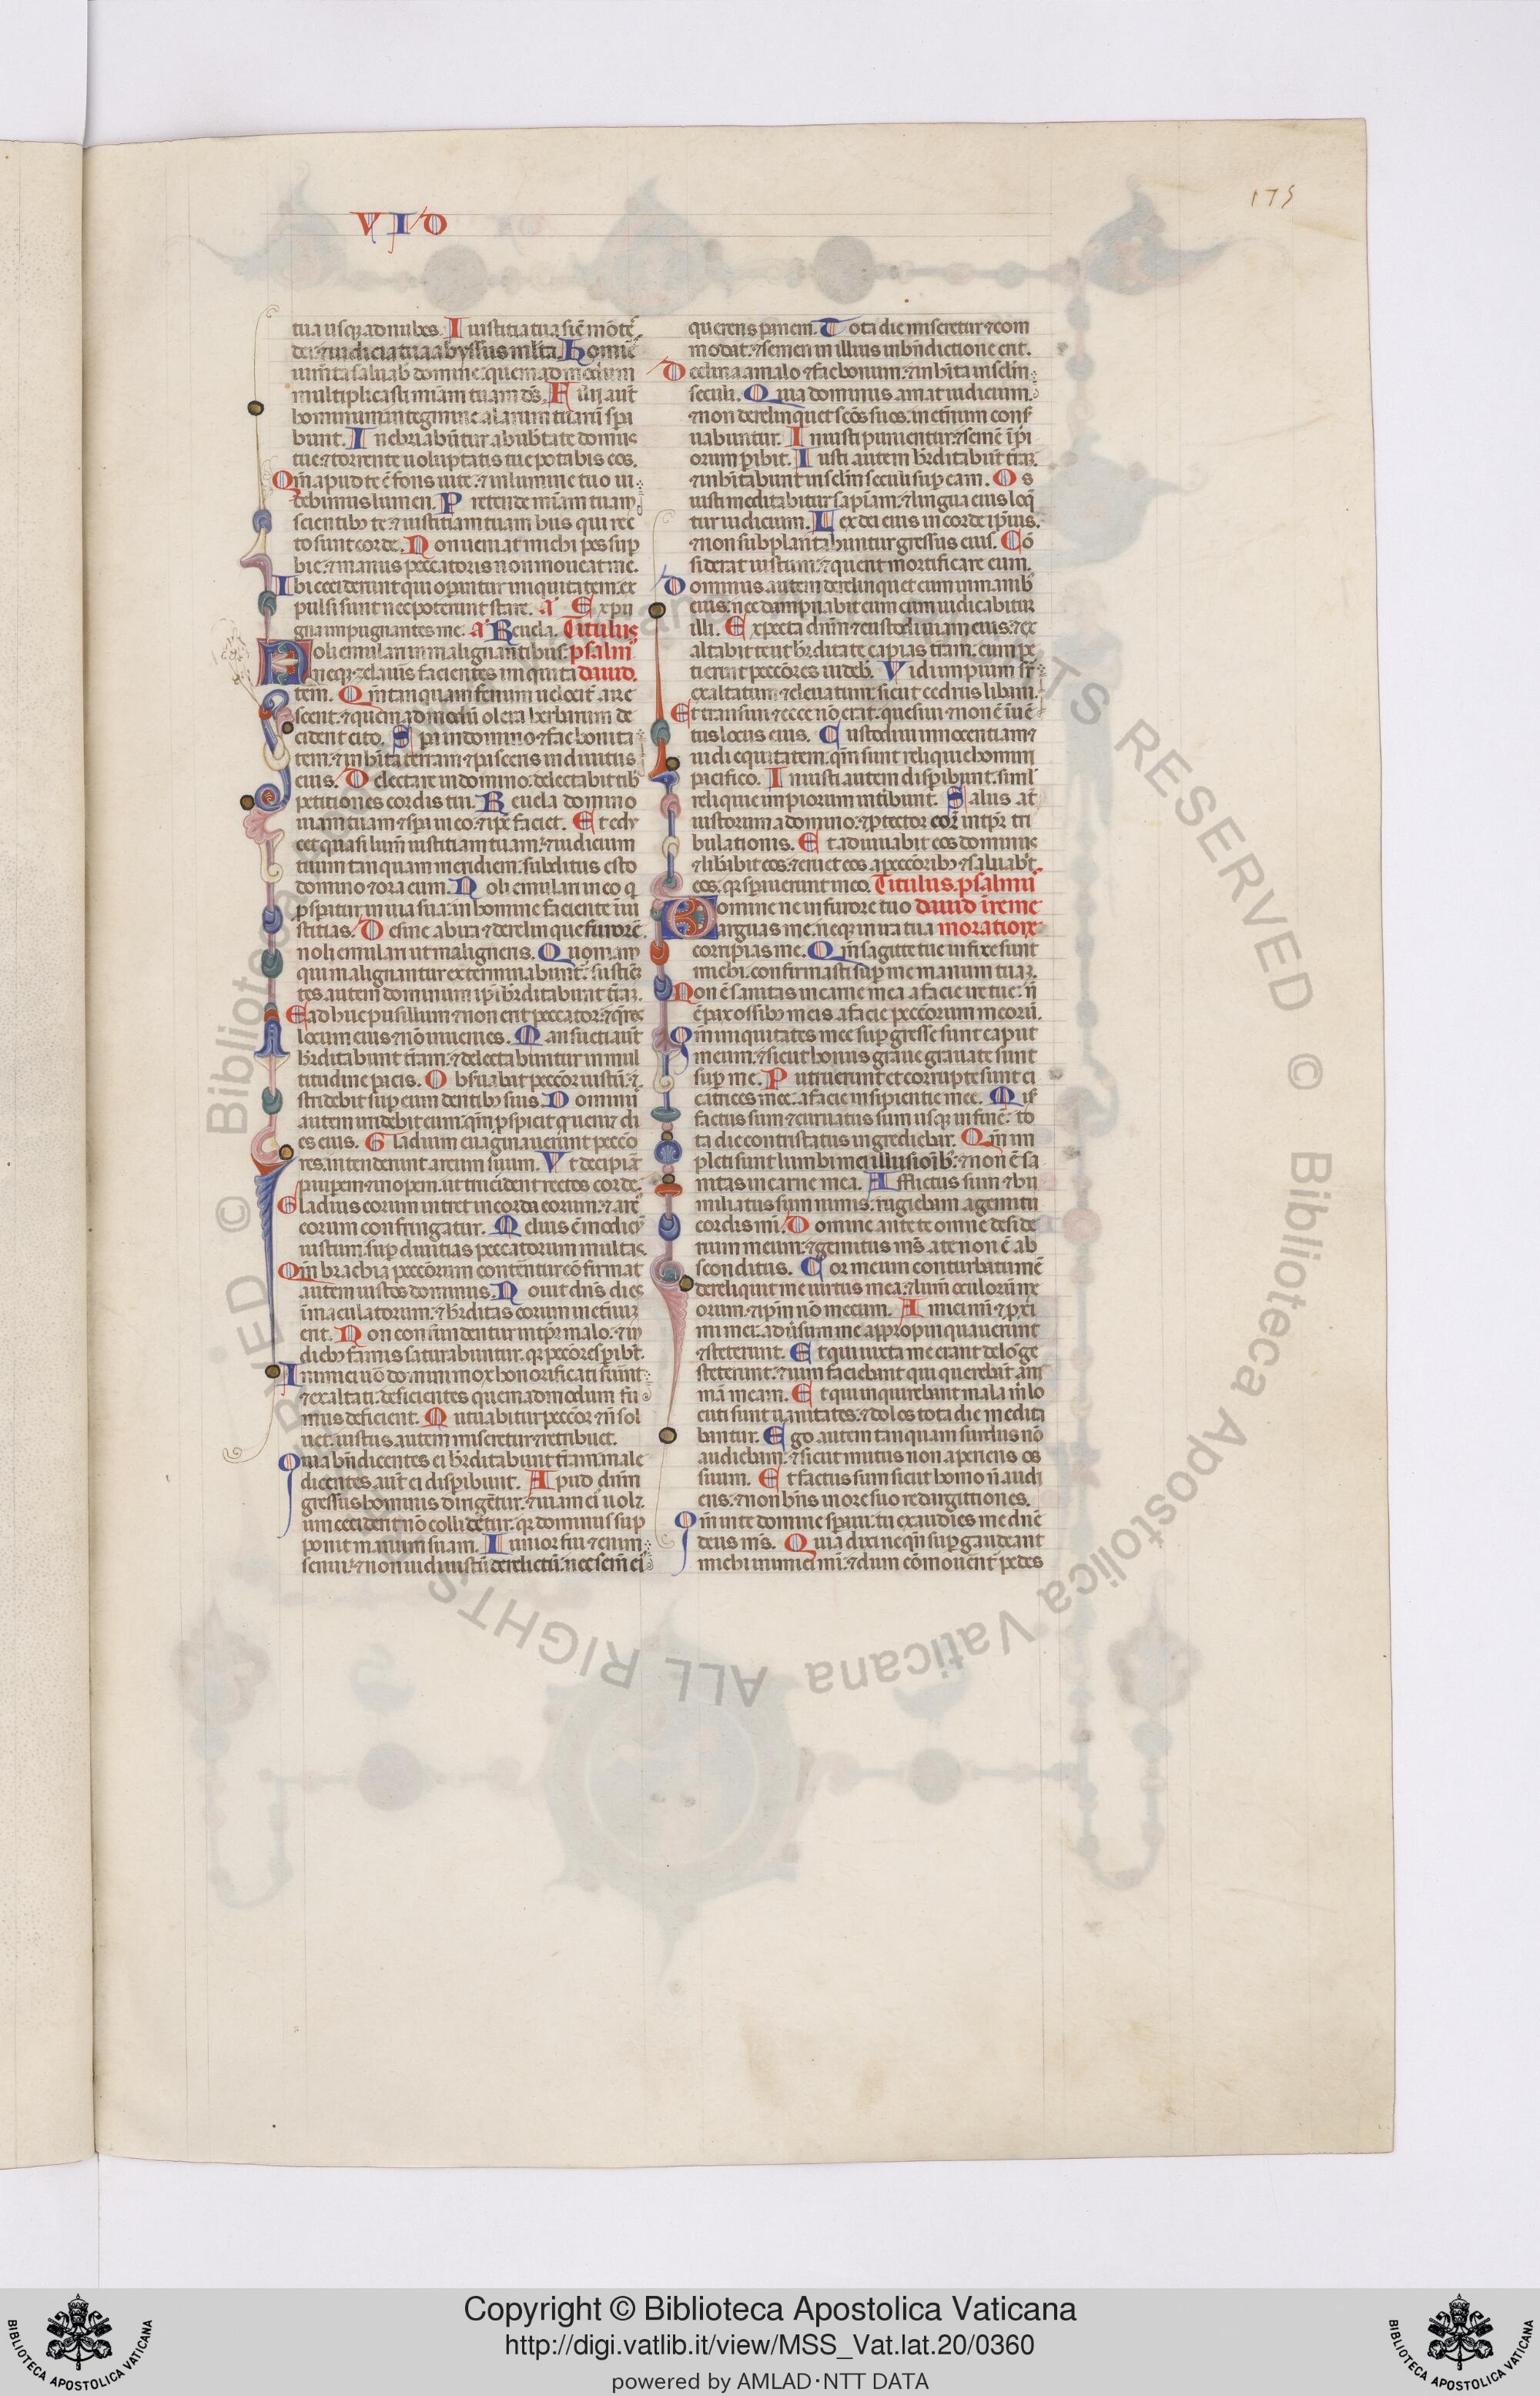 VID
175
tua usq; ad nubes. Iustitia tua sic̄ mōtes
dei: ⁊ iudicia tua abyssus mlta. Homīes
⁊ iumta saluab̄ domine: quemadmodum
multiplicasti miām tuam ds̄. Filij aut̄
hominum in tegmine alarum tuarū spera
bunt. Inebriabūtur ab ubtate domus
tue: ⁊ torrente uoluptatis tue potabis eos.
Qm̄ apud te ē fons uite: ⁊ in lumine tuo ui
debimus lumen. Pretende miām tuam
scientib; te: ⁊ iustitiam tuam hiis qui rec
to sunt corde. Non ueniat michi pes sup
bie: ⁊ manus peccatoris non moueat me.
Ibi ceciderunt qui operantur iniquitatem: ex
pulsi sunt nec potuerunt stare. a' Expu
gna impugnantes me. a' Reuela. Titulus
Noli emulari in malignantibus: psalmi
neq; zelaueris facientes iniquita dauid.
tem. Qm̄ tanquam fenum uelocit̄ are
scent: ⁊ quemadmodū olera herbarum de
cident cito. Spa in domino ⁊ fac bonita
tem: ⁊ inhita terram ⁊ pasceris in diuitiis
eius. Delectare in domino: ⁊ delectabit tib
petitiones cordis tui. Reuela domino
uiam tuam ⁊ spa in eo: ⁊ ipe faciet. Et edu
cet quasi lum̄ iustitiam tuam: ⁊ iudicium
tuum tanquam meridiem: subditus esto
domino ⁊ ora eum. Noli emulari in eo q
pspatur in uia sua: in homine faciente iniu
stitias. Desine ab ira ⁊ derelinque furorē:
noli emulari ut maligneris. Quoniam
qui malignantur exterminabunt̄: sustinē
tes autem dominum ipi hrditabunt tram.
Et adhuc pusillum ⁊ non erit peccator: ⁊ q̄res
locum eius ⁊ nō inuenies. Mansueti aut̄
hrditabunt tram: ⁊ delectabuntur in mul
titudine pacis. Obsuabit peccōr iustū: ⁊
stridebit sup eum dentib; suis. Dominus
autem irridebit eum: qm̄ pspicit q ueniet di
es eius. Gladium euaginauerunt pecco
res: intenderunt arcum suum. Vt decipiāt
paupem ⁊ inopem: ut trucident rectos corde.
Gladius eorum intret in corda eorum: ⁊ arc
eorum confringatur. Melius ē modicū
iustum: sup diuitias peccatorum multas.
Qm̄ brachia peccōrum conterentur: cōfirmat
autem iustos dominus. Nouit dn̄s dies
īmaculatorum: ⁊ hrditas eorum in etnum
erit. Non confundentur in tpr malo: ⁊ in
dieb; famis saturabuntur: q; peccōres pibt̄.
Inimici uō domini mox honorificati fuerint
⁊ exaltati: deficientes quemadmodum fu
mus deficient. Mutuabitur peccōr ⁊ n̄ sol
uet: iustus autem miseretur ⁊ retribuet.
Quia bn̄dicentes ei hrditabunt tram: male
dicentes aut̄ ei dispibunt. Apud dnm̄
gressus hominis dirigētur: ⁊ uiam ei uolet.
Cum ceciderit nō collidetur: q; dominus sup
ponit manum suam. Iunior fui ⁊ enim
senui: ⁊ non uidi iustū derelictū: nec sem̄ ei
querens panem. Tota die miseretur ⁊ com
modat: ⁊ semen illius in bn̄dictione erit.
Declina a malo ⁊ fac bonum: ⁊ inhita in sclm̄
seculi. Quia dominus amat iudicium:
⁊ non derelinquet scōs suos: in etnum cons
uabuntur. Iniusti punientur: ⁊ semē ipi
orum pibit. Iusti autem hrditabūt tram:
⁊ inhitabunt in sclm̄ seculi sup eam. Os
iusti meditabitur sapiam: ⁊ lingua eius loq
tur iudicium. Lex dei eius in corde ipius:
⁊ non subplantabuntur gressus eius. Cō
siderat iustum: ⁊ querit mortificare eum.
Dominus autem derelinquet eum in manib
eius: nec dampnabit eum cum iudicabitur
illi. Expecta dnm̄ ⁊ custodi uiam eius: ⁊ ex
altabit te ut hrditate capias tram: cum pe
rierint peccōres uideb̄. Vidi impium sr
exaltatum: ⁊ eleuatum sicut cedrus libani.
Et transiui: ⁊ ecce nō erat: quesiui ⁊ non ē inuē
tus locus eius. Custodi innocentiam ⁊
uidi equitatem: qm̄ sunt reliquie homini
pacifico. Iniusti autem dispibunt siml̄:
reliquie impiorum intibunt. Salus at̄
iustorum a domino: ⁊ ptector eor in tpr tri
bulationis. Et adiuuabit eos dominus
⁊ libabit eos: ⁊ eruet eos a peccōrib; ⁊ saluabt̄
eos: q; sperauerunt in eo. Titulus. psalmi
Domine ne in furore tuo dauid ī reme
arguas me: neq; in ira tua moratiōe
corripias me. Qm̄ sagitte tue infixe sunt
michi: confirmasti sup me manum tuam.
Non ē sanitas in carne mea a facie ire tue: n̄
ē pax ossib; meis a facie peccorum meorū.
Qm̄ iniquitates mee supgresse sunt caput
meum: ⁊ sicut honus graue grauate sunt
sup me. Putruerunt et corrupte sunt ci
catrices mee: a facie insipientie mee. Mis
factus sum ⁊ curuatus sum usq; in finē: to
ta die contristatus ingrediebar. Qm̄ im
pleti sunt lumbi mei illusiōib;: ⁊ non ē sa
nitas in carne mea. Afflictus sum ⁊ hu
miliatus sum nimis: rugiebam a gemitu
cordis mī. Domine ante te omne deside
rium meum: ⁊ gemitus ms̄ a te non ē ab
sconditus. Cor meum conturbatum ē
dereliquit me uirtus mea: ⁊ lum̄ oculorū me
orum: ⁊ ipm̄ nō mecum. Amici mī ⁊ pxi
mi mei: aduersum me appropinquauerunt
⁊ steterunt. Et qui iuxta me erant de lōge
steterunt: ⁊ uim faciebant qui querebāt ani
mā meam. Et qui inquirebant mala mī lo
cuti sunt uanitates: ⁊ dolos tota die medita
bantur. Ego autem tanquam surdus nō
audiebam: ⁊ sicut mutus non aperiens os
suum. Et factus sum sicut homo n̄ audi
ens: ⁊ non hn̄s in ore suo redargutiones.
Qm̄ in te domine speraui: tu exaudies me dnē
deus ms̄. Quia dixi neqn̄ supgaudeant
michi inimici mī: ⁊ dum cōmouent̄ pedes
© Biblioteca Apostolica Vaticana ALL RIGHTS RESERVED
Copyright © Biblioteca Apostolica Vaticana
http://digi.vatlib.it/view/MSS_Vat.lat.20/0360
powered by AMLAD·NTT DATA
BIBLIOTECA APOSTOLICA VATICANA
BIBLIOTECA APOSTOLICA VATICANA